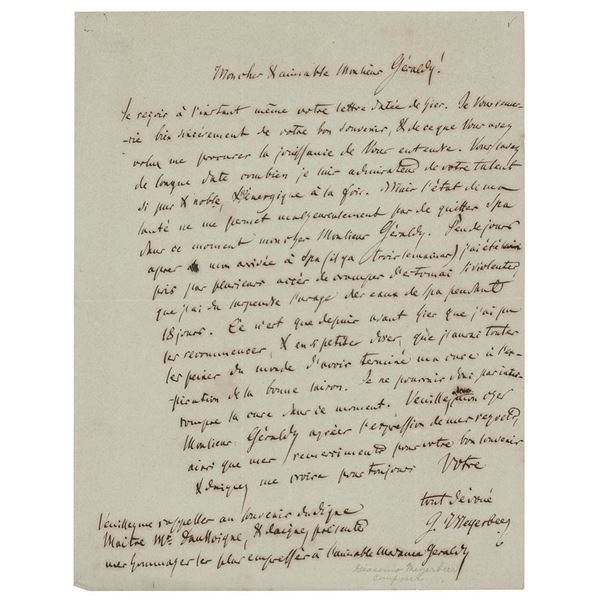 Moncher & aimable Monsieur Géraldy!
Je reçois à l'instant même votre lettre datée de hier. Je Vous remer-
-cie bien sincèrement de votre bon souvenir, & de ce que Vous avez
voulu me procurer la jouissance de Vous entendre. Vous savez
de longue date combien je suis admirateur de votre talent
si pur & noble, & énergique à la fois. Mais l'état de ma
santé ne me permet malheureusement pas de quitter Spa
dans ce moment moncher Monsieur Géraldy. Peu de jours
après mon arrivée à Spa (il y a trois semaines) j'ai été
pris par plusieurs accès de crampes d'estomac si violentes,
que j'ai du suspendre l'usage des eaux de Spa pendant
18 jours. Ce n'est que depuis avant hier que j'ai pu
les recommencer, & en si petites doses, que j'aurai toutes
les peines du monde d'avoir terminé ma cure à l'ex-
piration de la bonne saison. Je ne pourrais donc pas inter-
rompre la cure dans ce moment. Veuillez mon cher
Monsieur Géraldy agréer l'expression de mes regrets,
ainsi que mes remerciments pour votre bon souvenir
& daignez me croire pour toujours Votre
tout dévoué
G. Meyerbeer
Veuillez me rappeller au souvenir du digne
Maitre Mr. Daussoigne, & daignez présenter
mes hommages les plus empressés à l'aimable Madame Géraldy
Giacomo Meyerbeer
composer